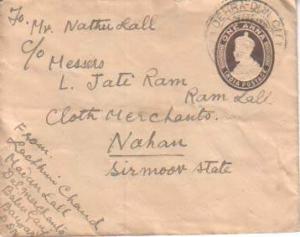 To,
Mr. Nathu Lall
C/o
Messers
L. Jati Ram
Ram Lall
Cloth Merchants.
Nahan
Sirmoor State
From:
Lachmi Chand
Madan Lall
DEHRA-DUN CITY
ONE ANNA
INDIA POSTAGE